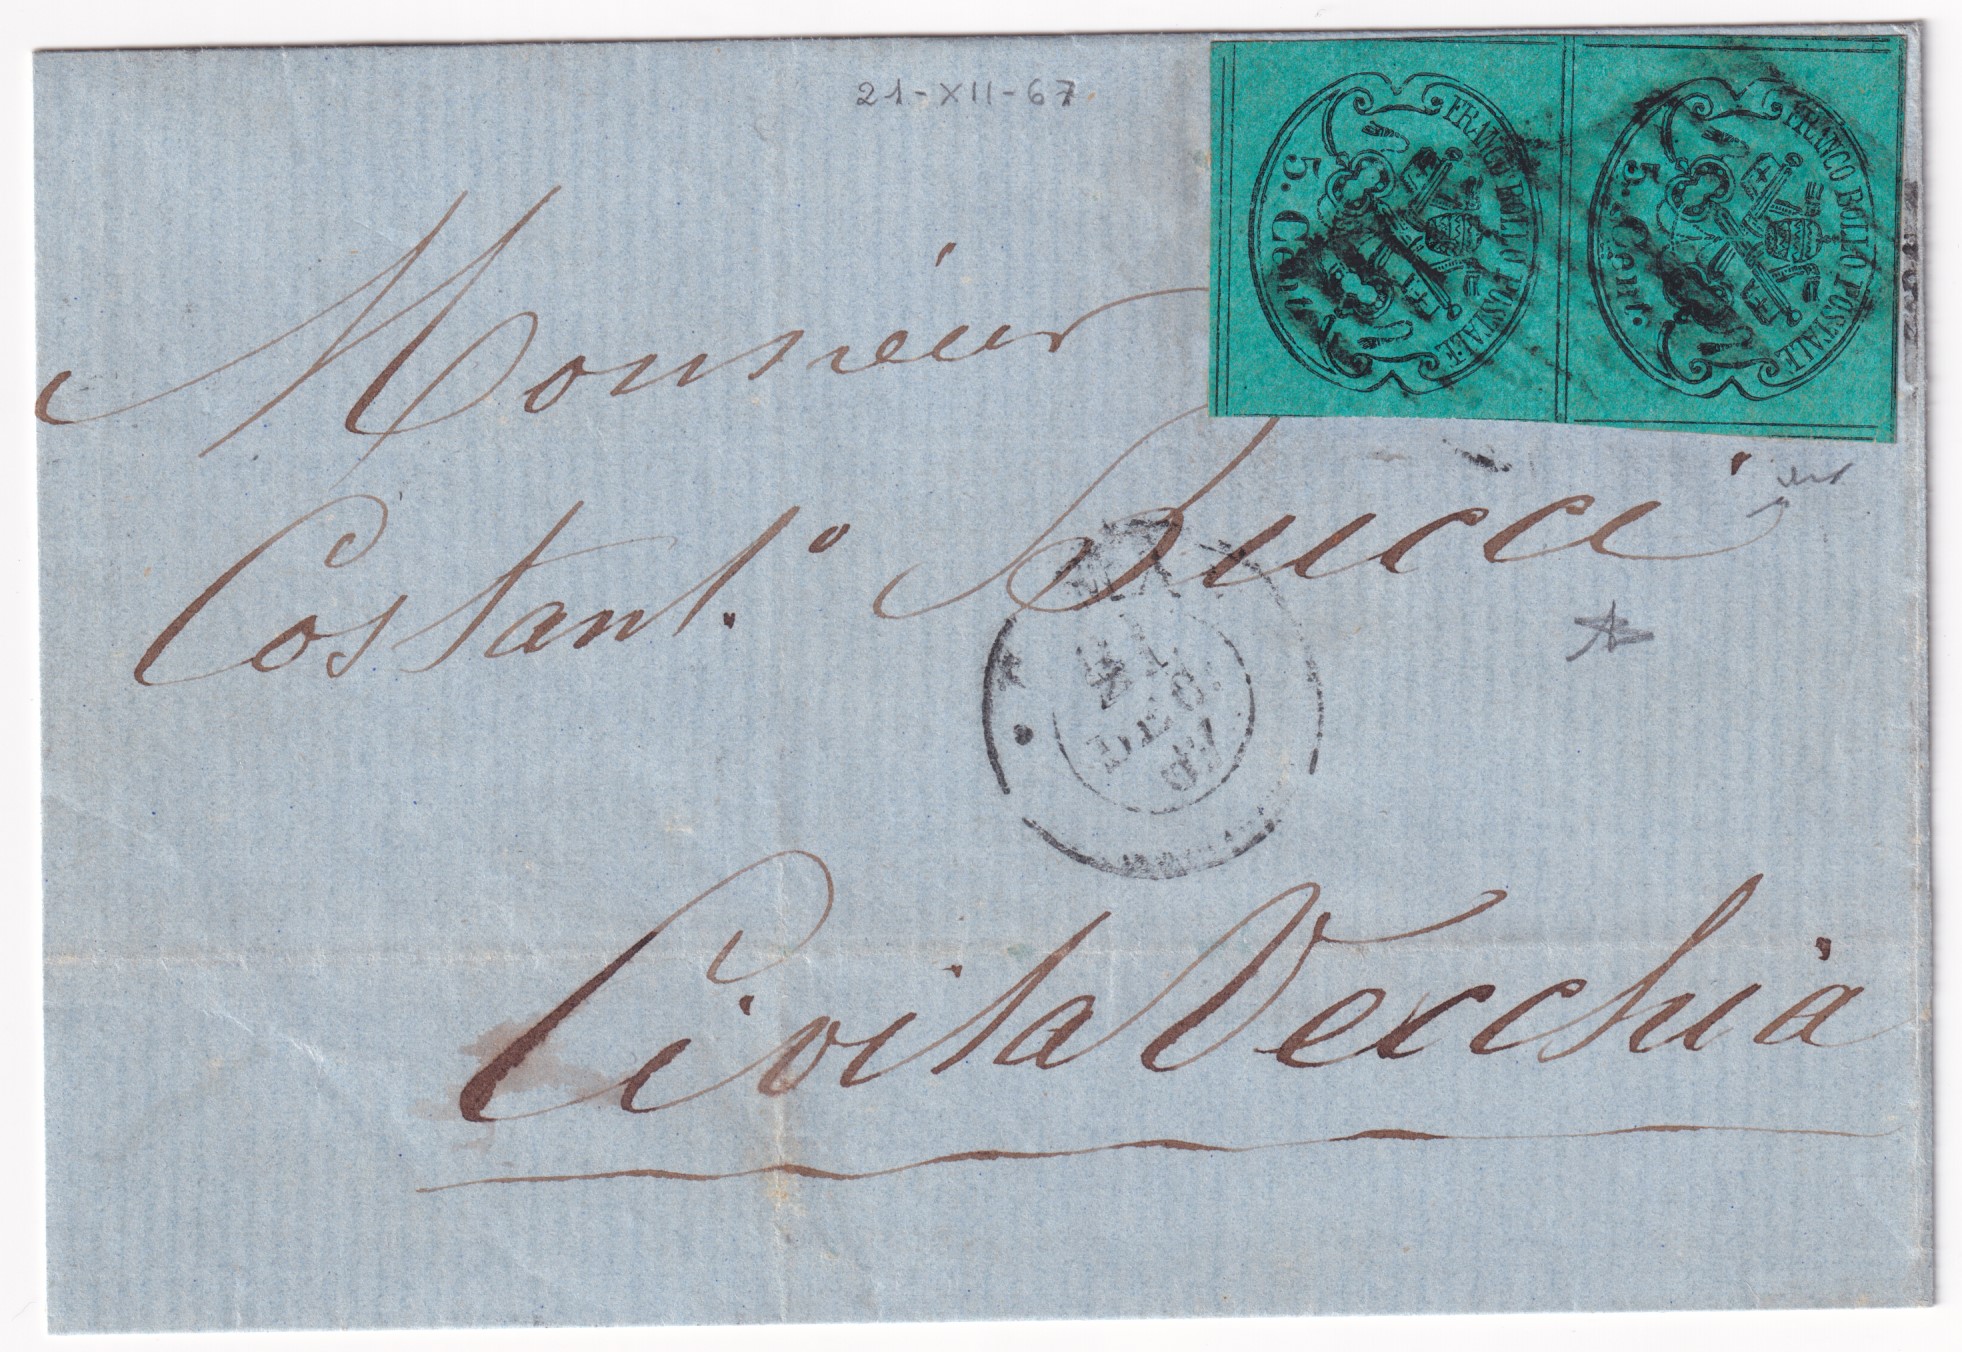 21-XII-67
FRANCO BOLLO POSTALE
5. Cent.
FRANCO BOLLO POSTALE
5. Cent.
Monsieur
Costant.o Bucci
21
DEC
67
CivitaVecchia